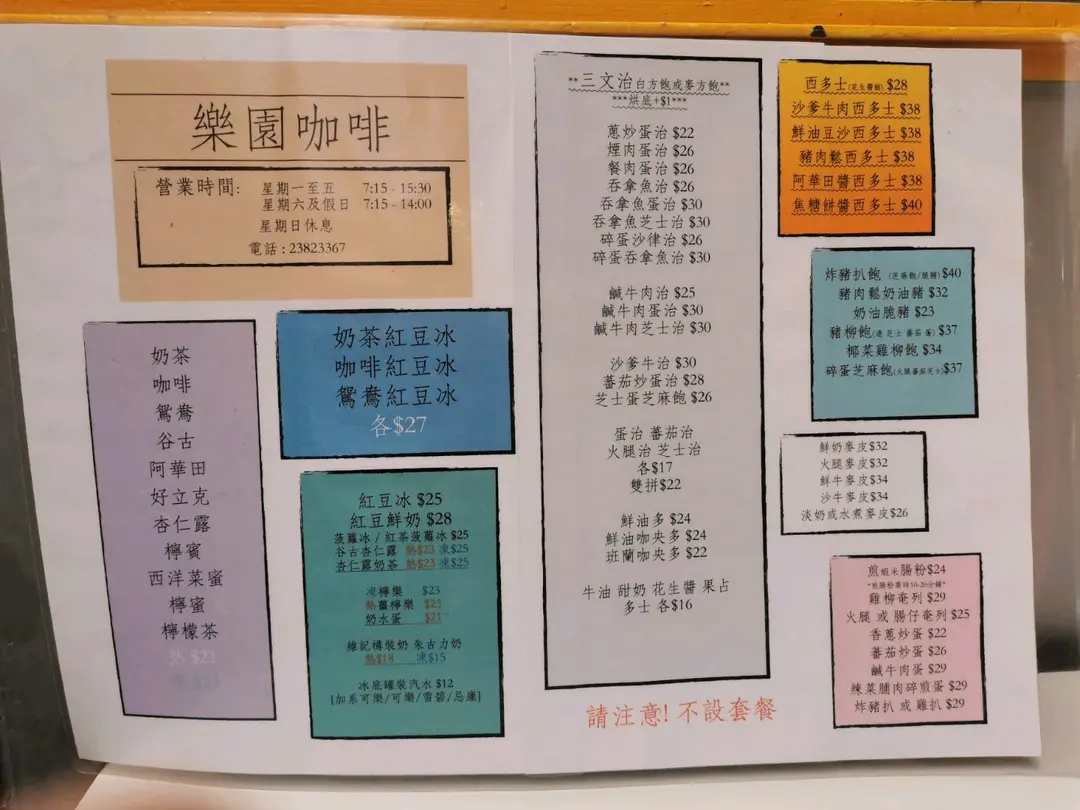 樂園咖啡
營業時間: 星期一至五 7:15 - 15:30
星期六及假日 7:15 - 14:00
星期日休息
電話 : 23823367
奶茶
咖啡
鴛鴦
谷古
阿華田
好立克
杏仁露
檸賓
西洋菜蜜
檸蜜
檸檬茶
熱 $21
奶茶紅豆冰
咖啡紅豆冰
鴛鴦紅豆冰
各$27
紅豆冰 $25
紅豆鮮奶 $28
菠蘿冰 / 紅茶菠蘿冰 $25
谷古杏仁露 熱$23 凍$25
杏仁露奶茶 熱$23 凍$25
凍檸樂 $23
熱薑檸樂 $25
奶水蛋 $21
維記樽裝奶 朱古力奶
熱$18 凍$15
冰底罐裝汽水 $12
[加系可樂/可樂/雪碧/忌廉]
**三文治白方飽或麥方飽**
***烘底+$1***
蔥炒蛋治 $22
煙肉蛋治 $26
餐肉蛋治 $26
吞拿魚治 $26
吞拿魚蛋治 $30
吞拿魚芝士治 $30
碎蛋沙律治 $26
碎蛋吞拿魚治 $30
鹹牛肉治 $25
鹹牛肉蛋治 $30
鹹牛肉芝士治 $30
沙爹牛治 $30
蕃茄炒蛋治 $28
芝士蛋芝麻飽 $26
蛋治 蕃茄治
火腿治 芝士治
各$17
雙拼$22
鮮油多 $24
鮮油咖央多 $24
班蘭咖央多 $22
牛油 甜奶 花生醬 果占
多士 各$16
請注意! 不設套餐
西多士(花生醬餡) $28
沙爹牛肉西多士 $38
鮮油豆沙西多士 $38
豬肉鬆西多士 $38
阿華田醬西多士 $38
焦糖餅醬西多士 $40
炸豬扒飽 (芝麻飽/脆豬)$40
豬肉鬆奶油豬 $32
奶油脆豬 $23
豬柳飽(連 芝士 蕃茄 蛋) $37
椰菜雞柳飽 $34
碎蛋芝麻飽(火腿蕃茄芝士)$37
鮮奶麥皮$32
火腿麥皮$32
鮮牛麥皮$34
沙牛麥皮$34
淡奶或水煮麥皮$26
煎蝦米腸粉$24
*煎腸粉需時10-20分鐘*
雞柳奄列 $29
火腿 或 腸仔奄列 $25
香蔥炒蛋 $22
蕃茄炒蛋 $26
鹹牛肉蛋 $29
辣菜脯肉碎煎蛋 $29
炸豬扒 或 雞扒 $29